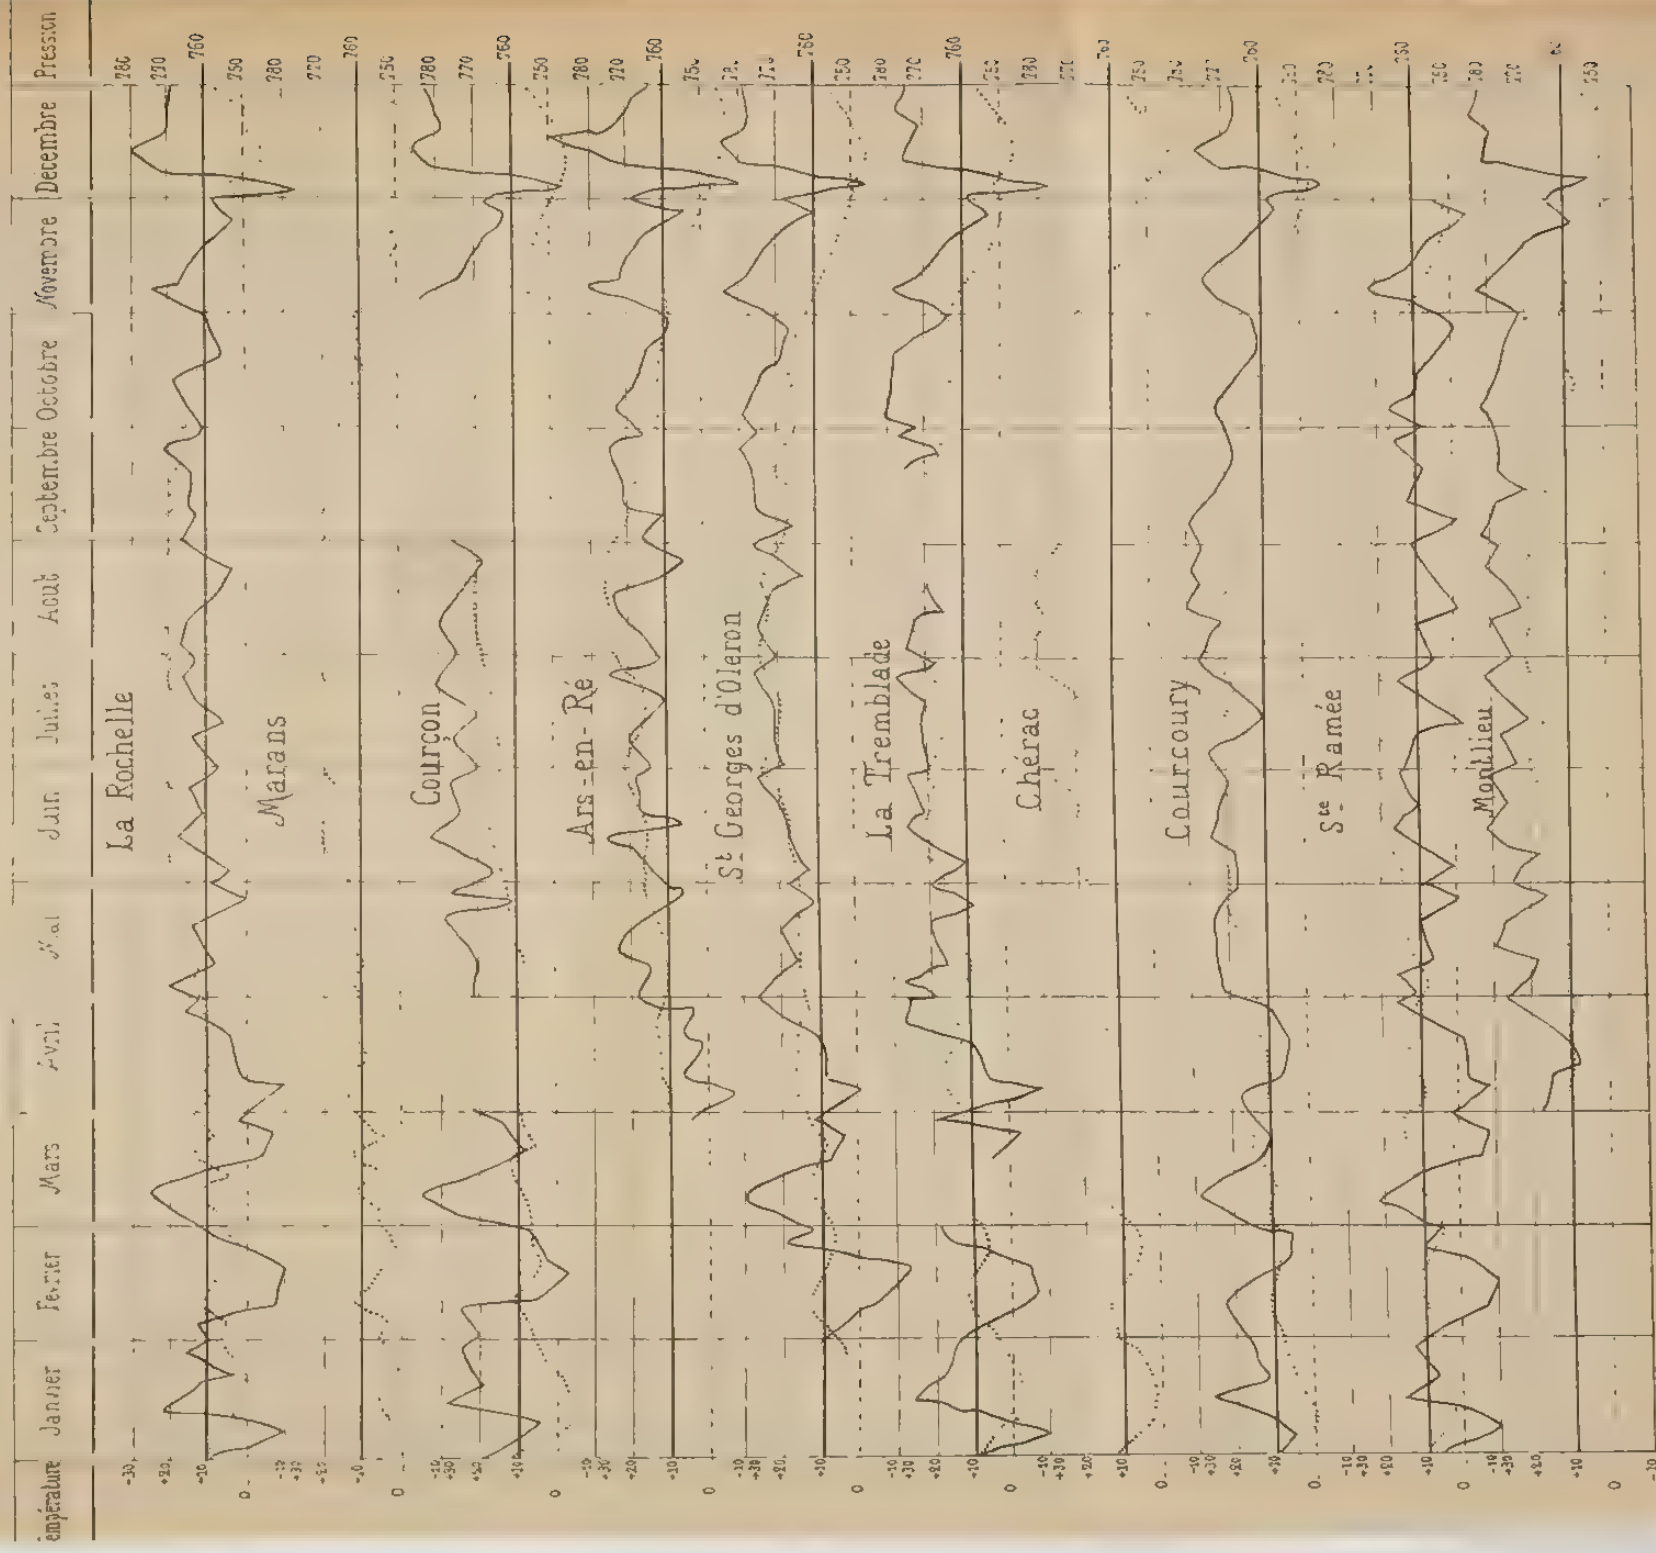 Température Janvier Février Mars Avril Mai Juin Juillet Août Septembre Octobre Novembre Décembre Pression
La Rochelle
Marans
Courçon
Ars-en-Ré
St Georges d'Oleron
La Tremblade
Chérac
Courcoury
Ste Ramée
Montlieu
+30
+20
+10
0
-10
+30
+20
+10
0
-10
+30
+20
+10
0
-10
+30
+20
+10
0
-10
+30
+20
+10
0
-10
+30
+20
+10
0
-10
+30
+20
+10
0
-10
+30
+20
+10
0
-10
+30
+20
+10
0
-10
+30
+20
+10
0
780
770
760
750
780
770
760
750
780
770
760
750
780
770
760
750
780
770
760
750
780
770
760
750
780
760
750
780
760
750
780
770
750